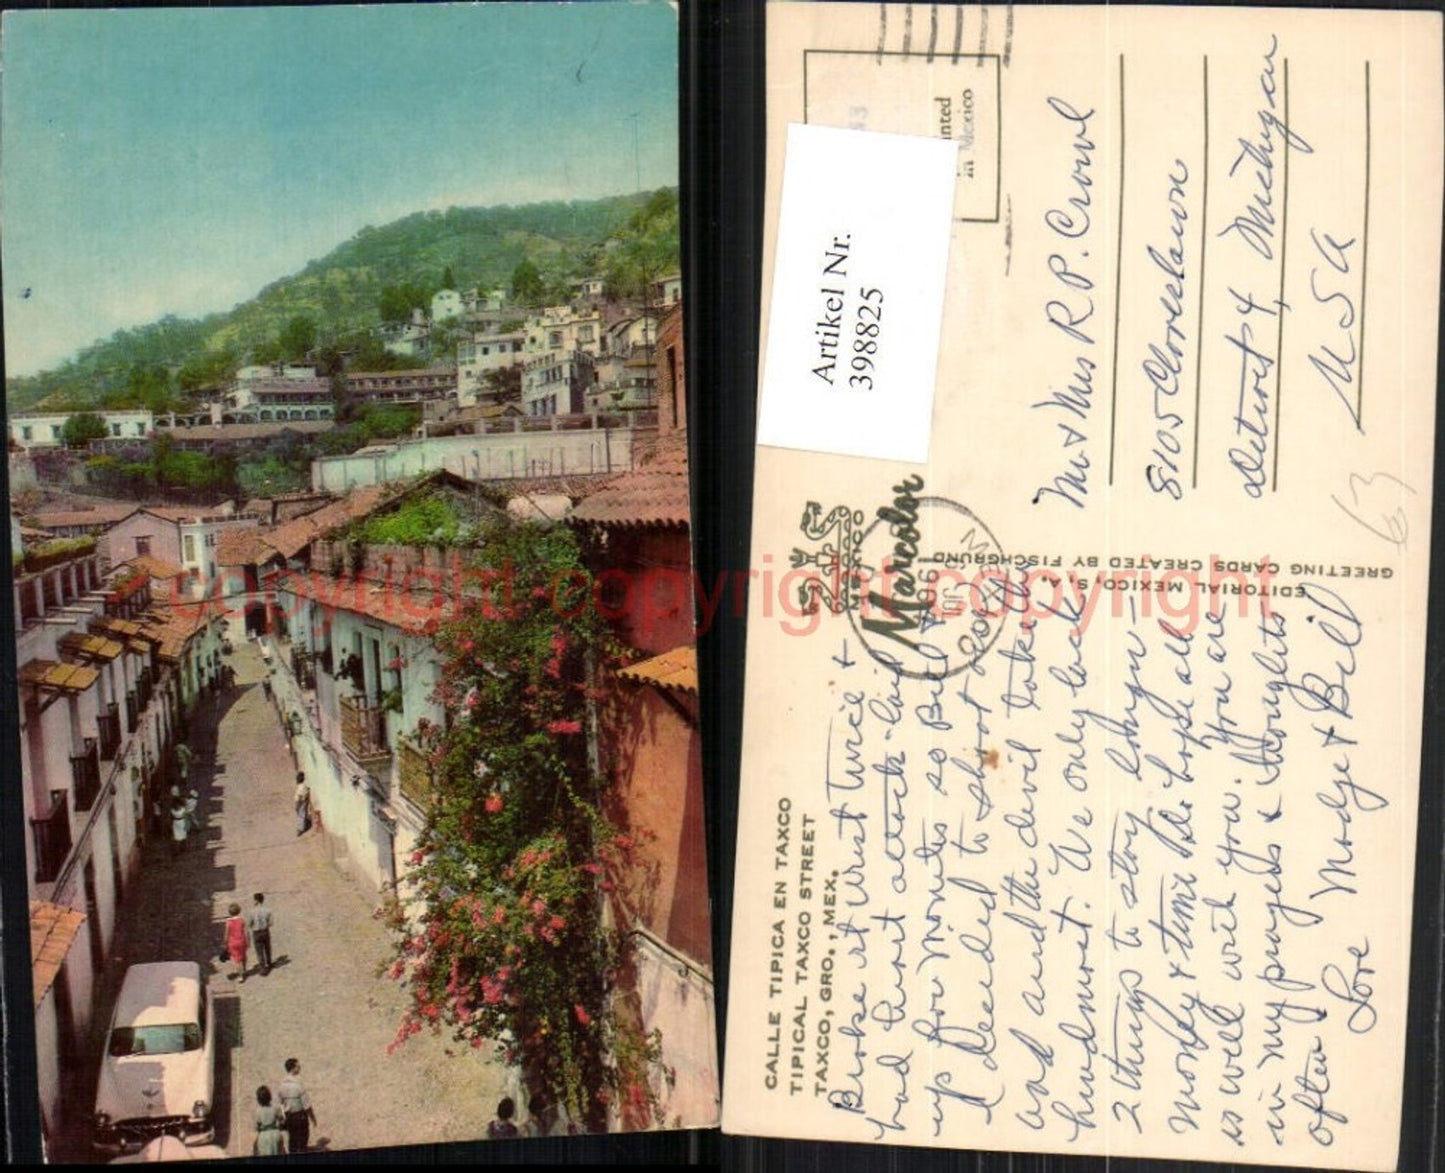 CALLE TIPICA EN TAXCO
TIPICAL TAXCO STREET
TAXCO, GRO., MEX.
Broke rt Wrist twice &
had heart attack laid
up for months so Bill &
I decided to shoot
and and the devil take the
hindmost. We only lack
2 things to stay longer —
money & time. We hope all
is well with you. You are
in my prayers & thoughts
often
Love Madge & Bill
NAE
MEXICO
Marcolor
1961
EDITORIAL MEXICO S.A.
GREETING CARDS CREATED BY FISCHGRUND
Artikel Nr.
398825
in Mexico
Mr & Mrs R P. Crowl
8105 Cloverlawn
Detroit 4, Michigan
USA
63
copyright copyright copyright